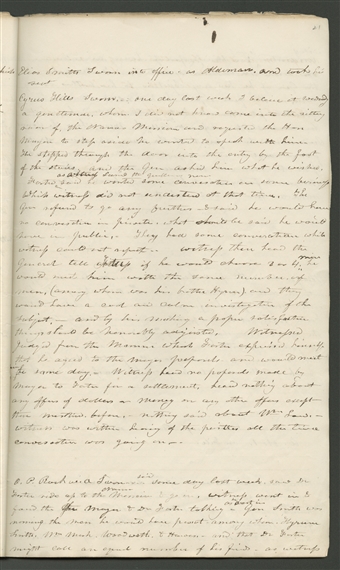 Elias Smith Sworn into office as Alderman, and took his
seat
Cyrus Hills Sworn. one day last week I believe it was
a gentleman, whom I did not know came into the sitting
room of the Nauvoo Mansion and requested the Hon
Mayor to step aside he wanted to speak with him.
He stepped through the door into the entry by the foot
of the stairs, and the Gen asked him what he wanted,
Foster said he wanted some conversation on some business
Which witness did not understand at that time, the
Gen refused to go any further & said he would have
no conversation in private, what should be said he would
have in public. They had some conversation which
witness could not
General tell if he would choose 3 or 4 men he
would meet him with the same number of
men, (among whom was his brother Hyrum) and they
would have a cool and calm investigation of the
subject, and by his making a proper satisfaction
things should be honorably adjusted. Witness
judged from the Manner which Foster expressed himself
that he agreed to the Mayor's proposals and would meet
the same day. Witness heard no proposals made by
Mayor to Foster for a settlement, heard nothing about
any offers of dollars or money or any other offers except
those mentioned before. nothing said about Wm Law.
witness was within hearing of the parties all the time
conversation was going on.
O. P. Rockwell Sworn some day last week, saw Dr
Foster ride up to the Mansion & go in, witness went in &
found the Mayor & Dr Foster talking Gen Smith was
naming the men he would have present among whom Hyrum
Smith, Wm Marks, and that Dr Foster
might call an equal number of his friends as witness